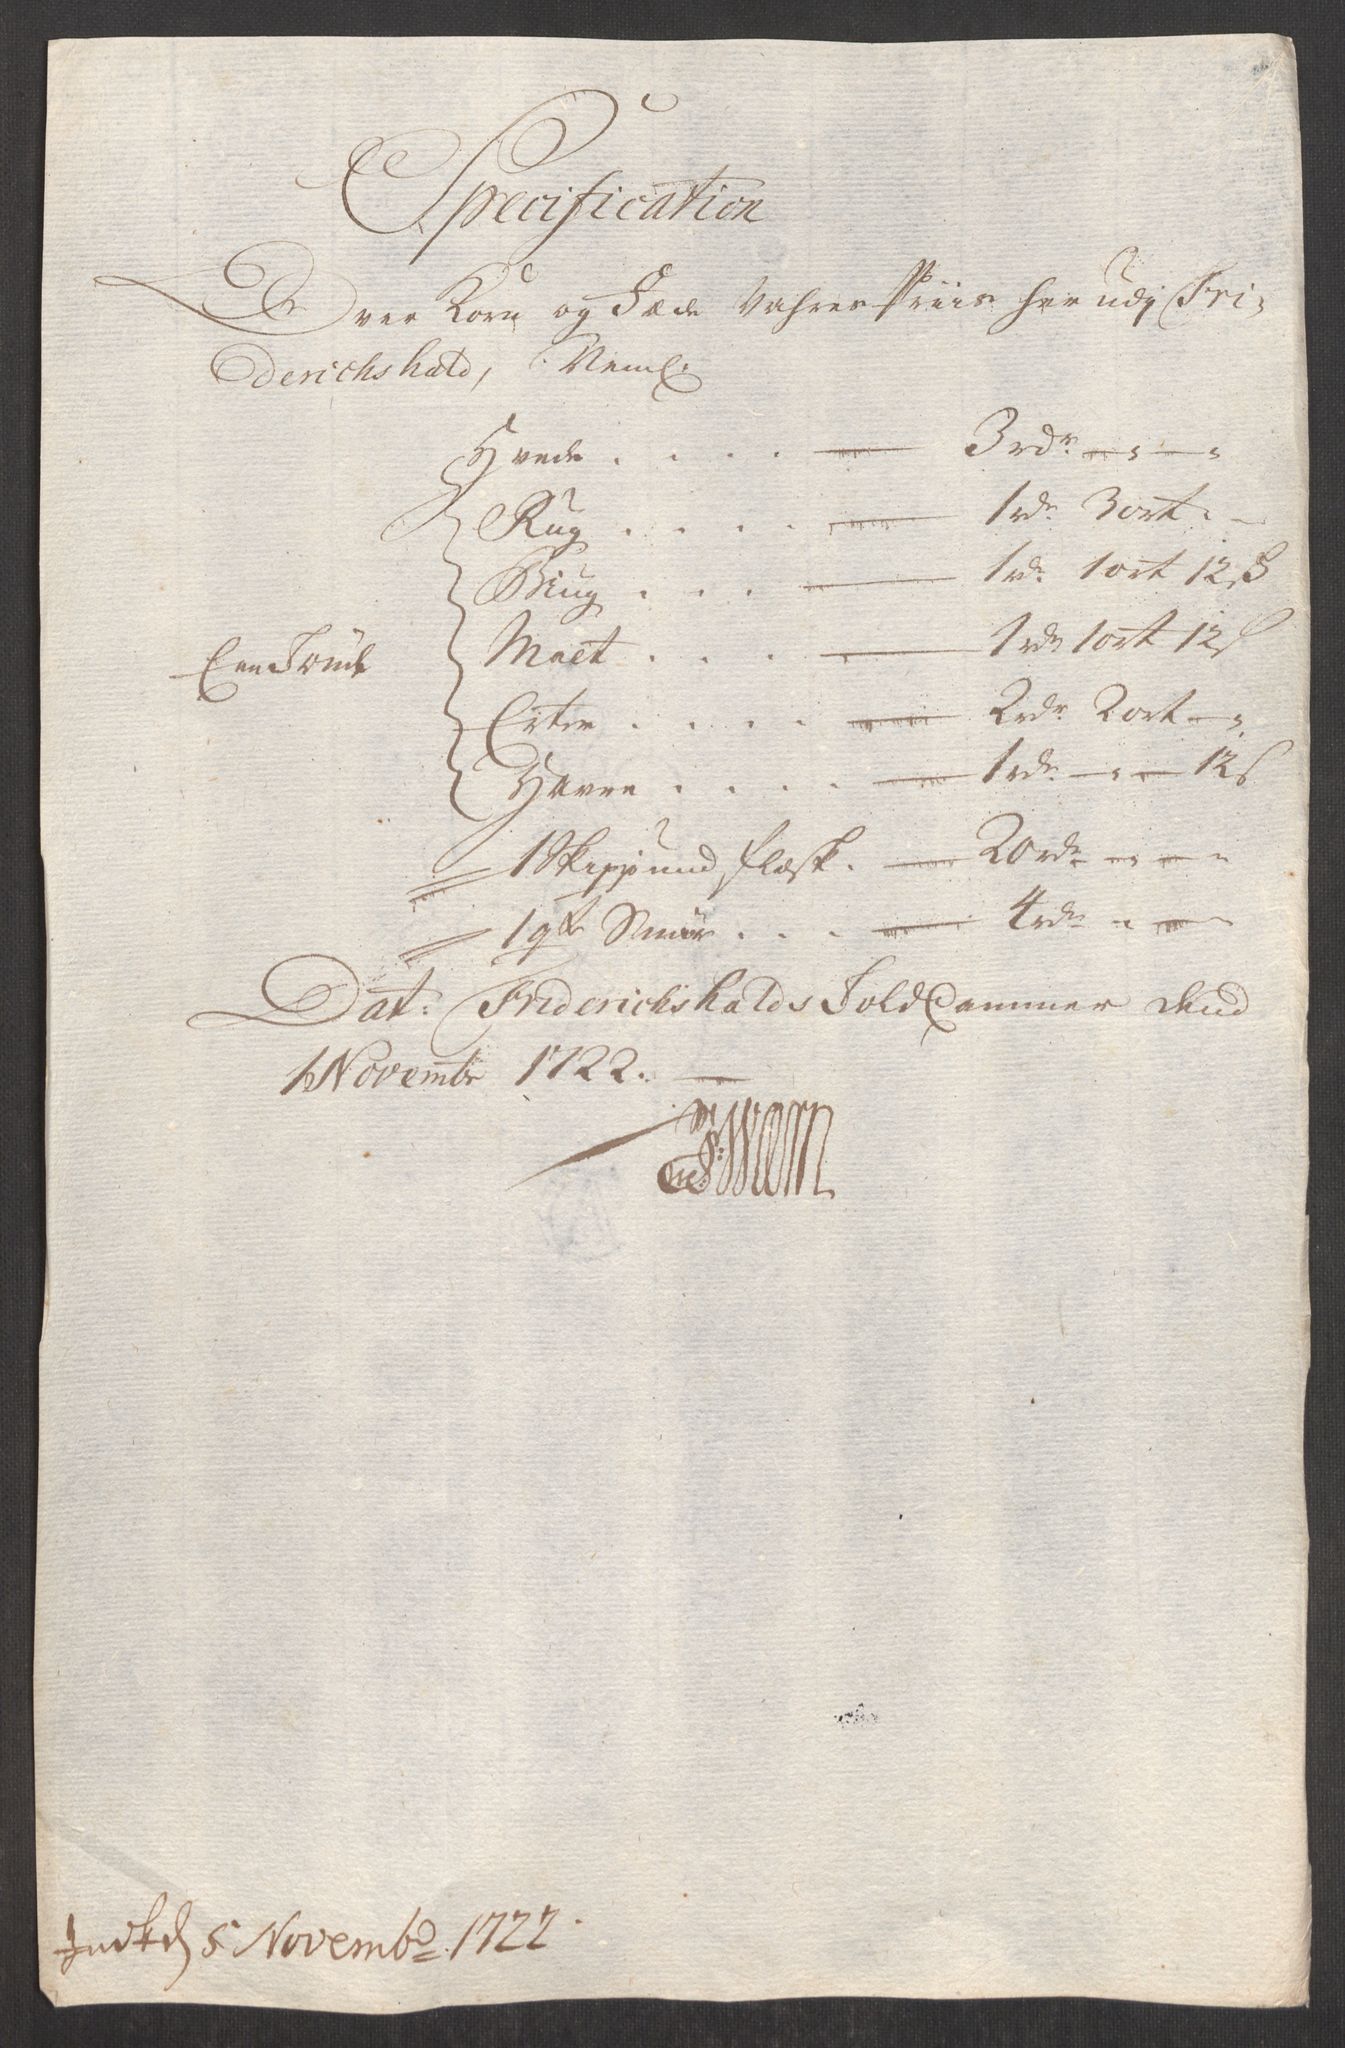 Specification
Over Korn og Fæde Vahres Priis her udj Fri-
derichshald, Neml.
Hvede . . . . — 3 rdr — " — "
Rug . . . . — 1 rdr 3 ort " –
Biug . . . — 1 rdr 1 ort 12 ß
Een Tönde Malt . . . — 1 rdr 1 ort 12 ß
Erter . . . . — 2 rdr 2 ort — "
Havre . . . . — 1 rdr — " — 12 ß
1 Skippund flæsk . — 20 rdr — " — "
1 qtr Smör . . . — 4 rdr " — "
Dat: Friderichshalds Told Cammer dend
1 Novembr 1722. —
Worm
5 Novembr. 1722.